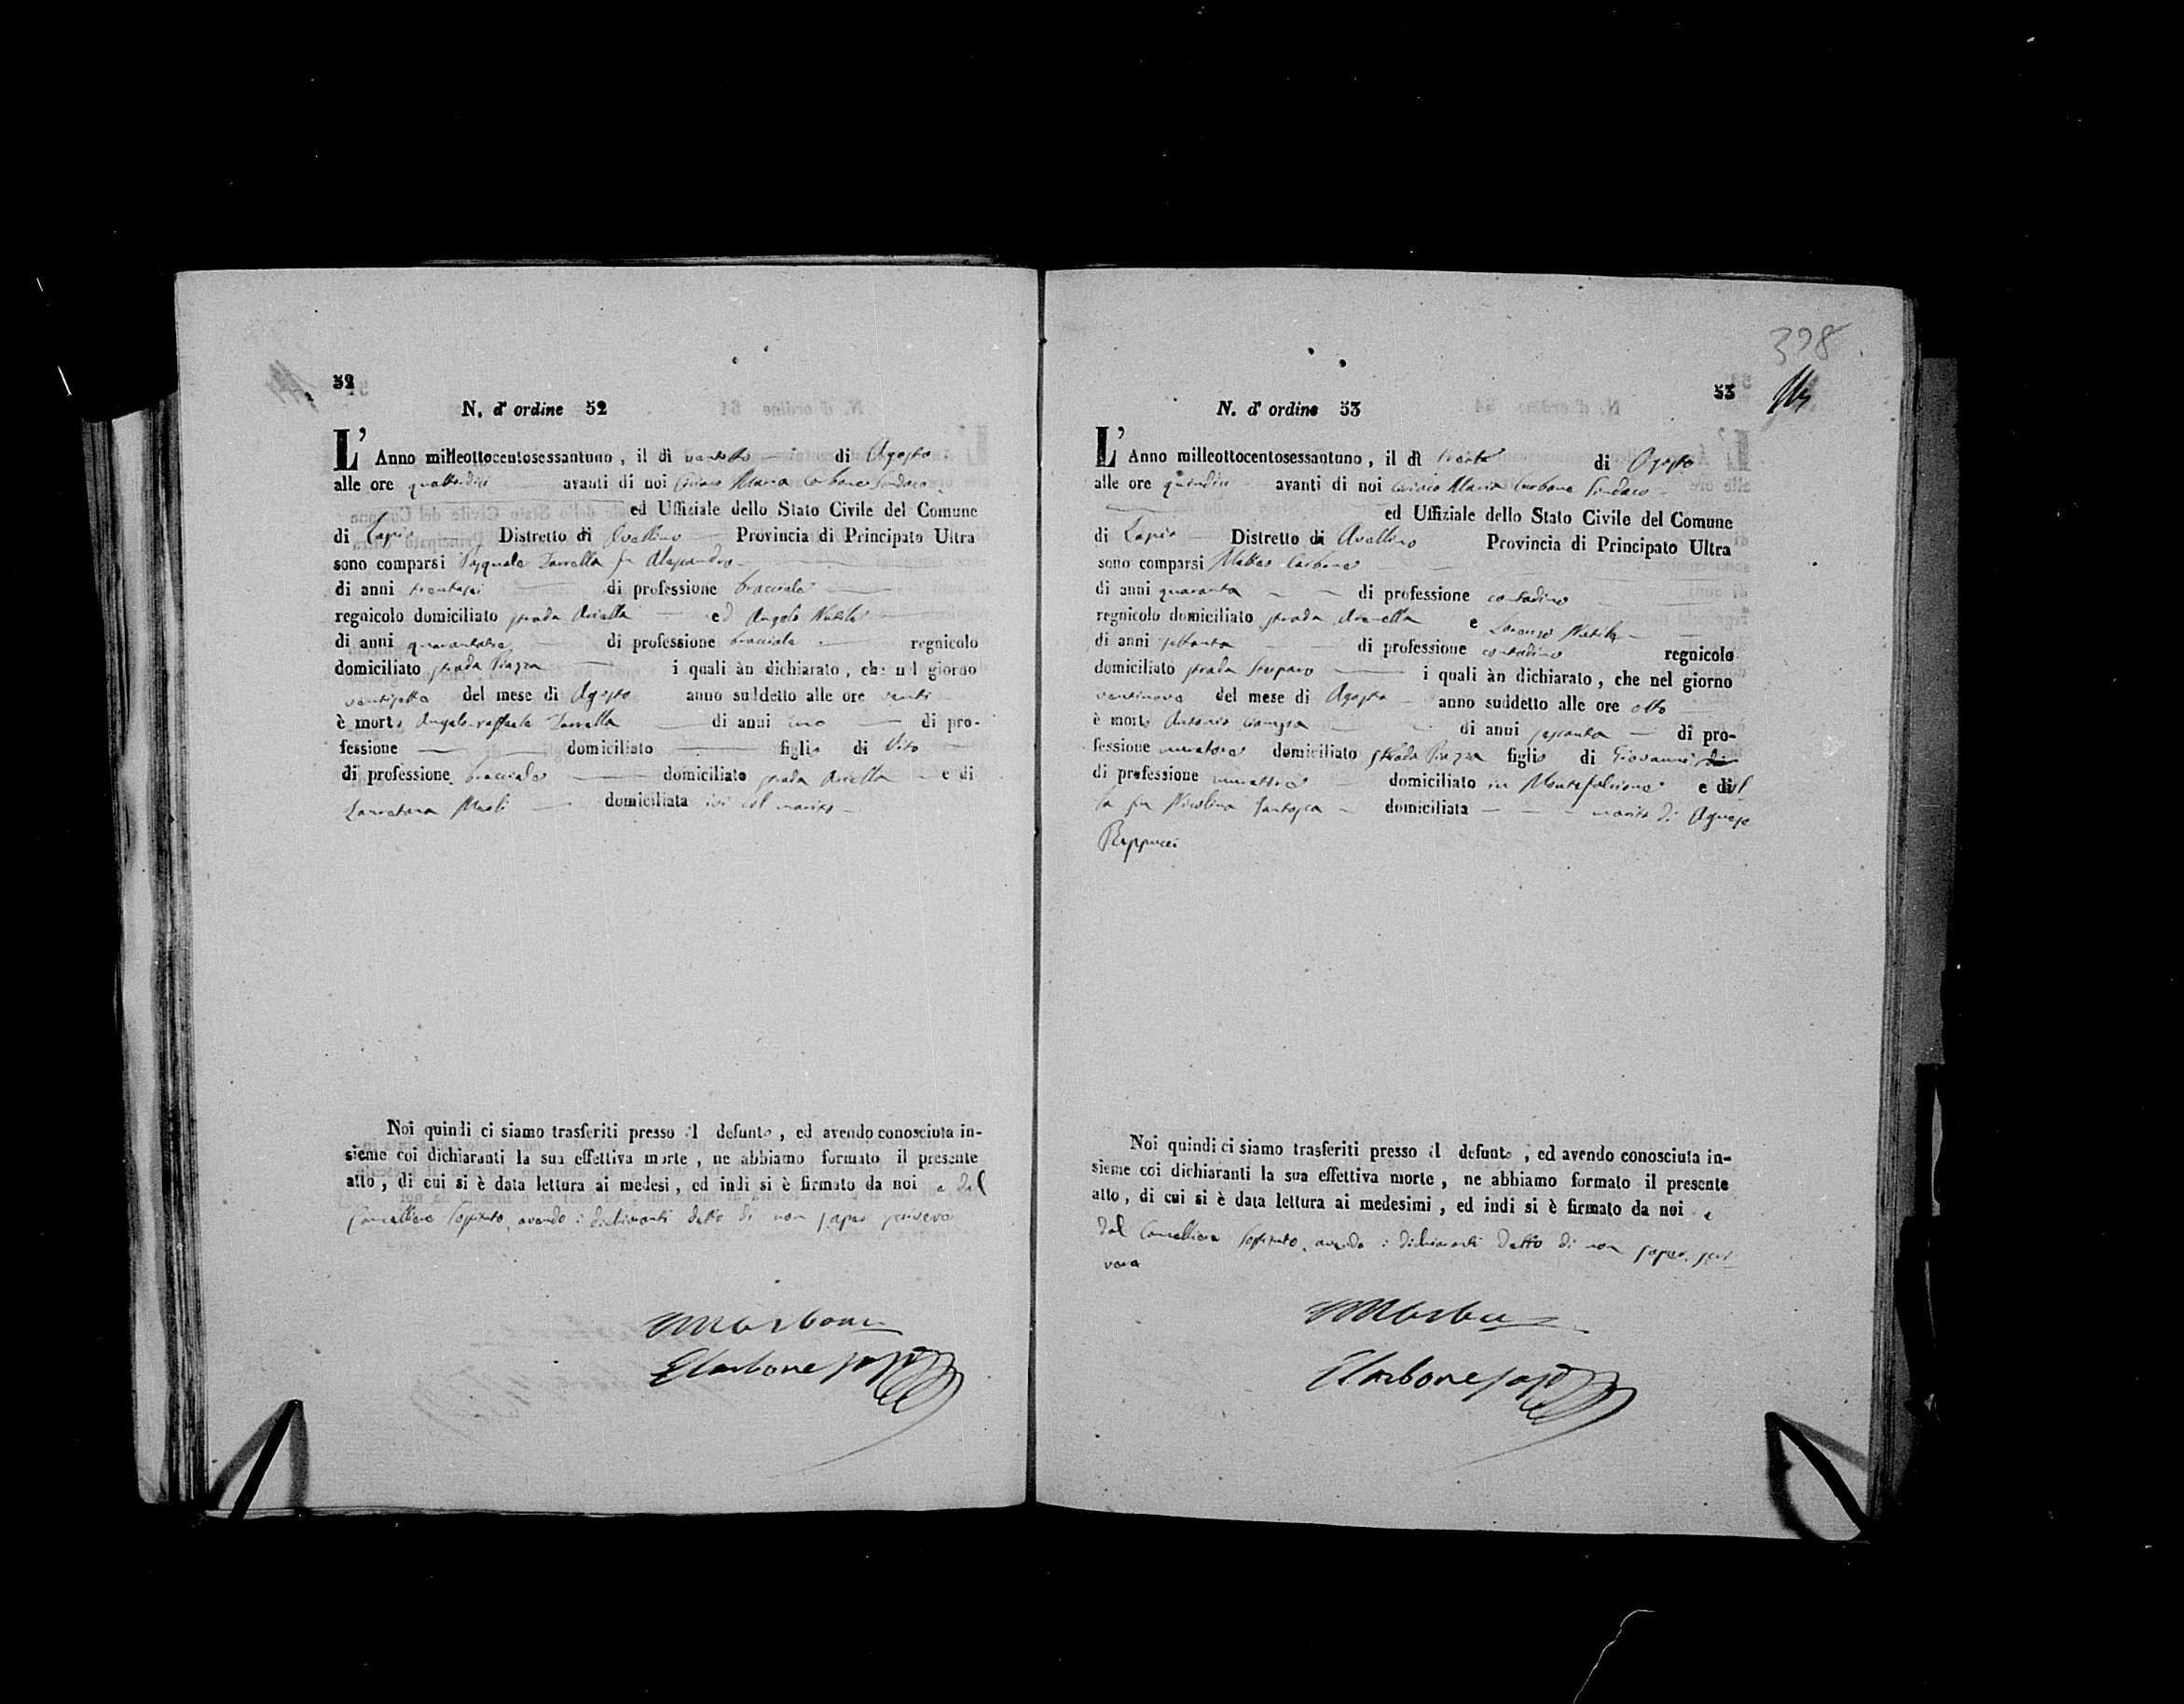 52
N. d' ordine 52
L' Anno milleottocentosessantuno, il dì ventotto di Agosto
alle ore quattordici avanti di noi Ciriaco Maria Carbone Sindaco
ed Uffiziale dello Stato Civile del Comune
di Lapio Distretto di Avellino Provincia di Principato Ultra
sono comparsi Pasquale fu Alessandro
di anni trentasei di professione bracciale
regnicolo domiciliato strada ed Angelo
di anni quarantatre di professione bracciale regnicolo
domiciliato strada Piazza i quali àn dichiarato, che nel giorno
ventisette del mese di Agosto anno suddetto alle ore venti
è morto Angelo-raffaele di anni uno di pro-
fessione domiciliato figlio di Vito
di professione bracciale domiciliato strada e di
domiciliata ivi col marito
Noi quindi ci siamo trasferiti presso il defunto, ed avendo conosciuta in-
sieme coi dichiaranti la sua effettiva morte, ne abbiamo formato il presente
atto, di cui si è data lettura ai medesi, ed indi si è firmato da noi e dal
Cancelliere sostituto, avendo i dichiaranti detto di non saper scrivere
Carbone
398
53
N. d' ordine 53
L' Anno milleottocentosessantuno, il dì trenta di Agosto
alle ore quindici avanti di noi Ciriaco Maria Carbone Sindaco
ed Uffiziale dello Stato Civile del Comune
di Lapio Distretto di Avellino Provincia di Principato Ultra
sono comparsi Matteo Carbone
di anni quaranta di professione contadino
regnicolo domiciliato strada e Lorenzo
di anni settanta di professione contadino regnicolo
domiciliato strada i quali àn dichiarato, che nel giorno
ventinove del mese di Agosto anno suddetto alle ore otto
è morto Antonio di anni sessanta di pro-
fessione muratore domiciliato strada Piazza figlio di Giovanni
di professione muratore domiciliato in Montefalcione e di
la fu Nicolina domiciliata marito di Agnese
Reppucci
Noi quindi ci siamo trasferiti presso il defunto, ed avendo conosciuta in-
sieme coi dichiaranti la sua effettiva morte, ne abbiamo formato il presente
atto, di cui si è data lettura ai medesimi, ed indi si è firmato da noi e
dal Cancelliere sostituto, avendo i dichiaranti detto di non saper scri-
vere
Carbone